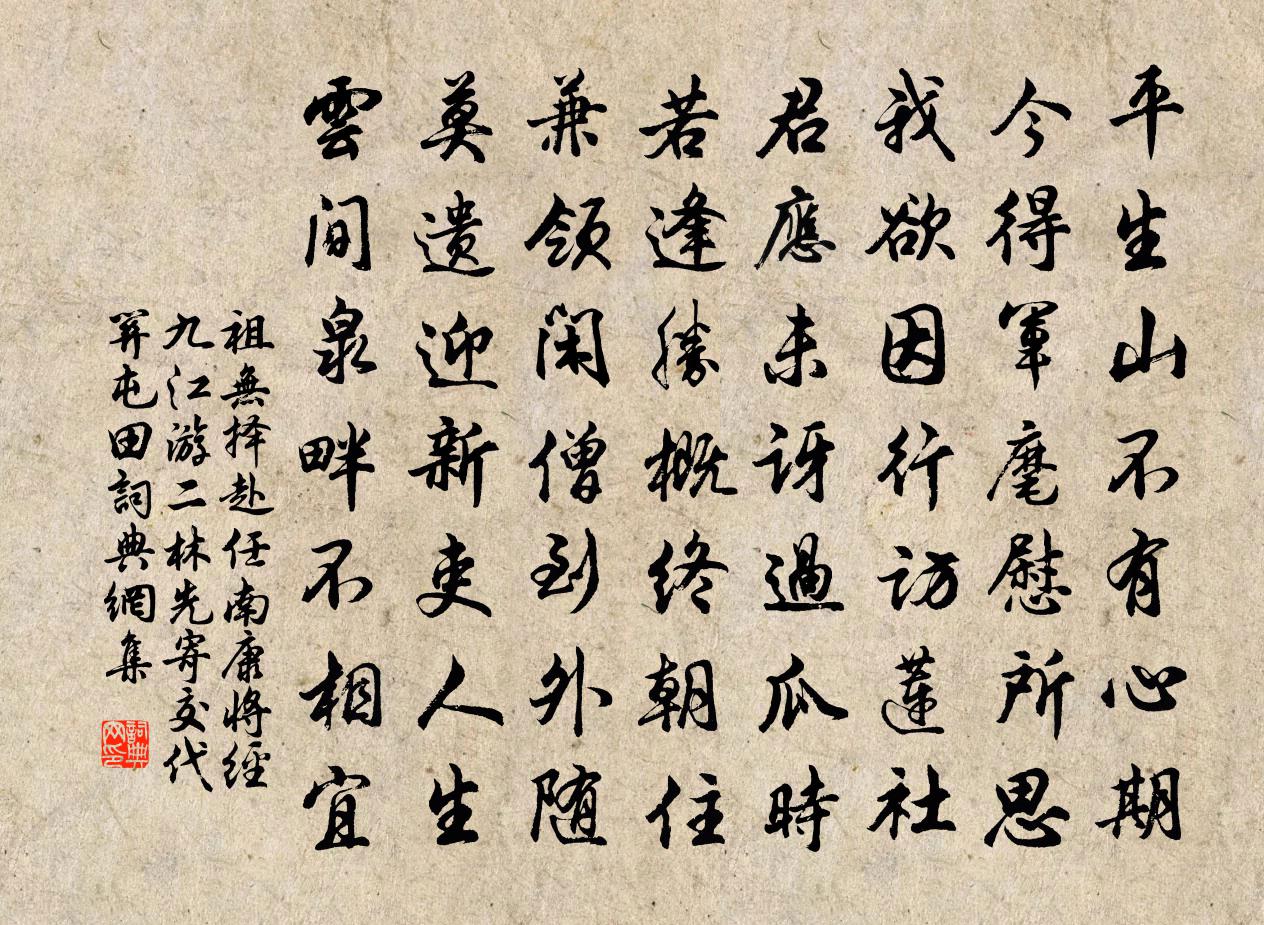 平生山不有心期
今得軍麾慰所思
我欲因行訪蓮社
君應未訝過瓜時
若逢勝概終朝住
兼領閑僧到外随
莫遺迎新吏人生
雲間泉畔不相宜
祖無择赴任南康將經
九江游二林先寄交代
詞典網集
詞典
网印